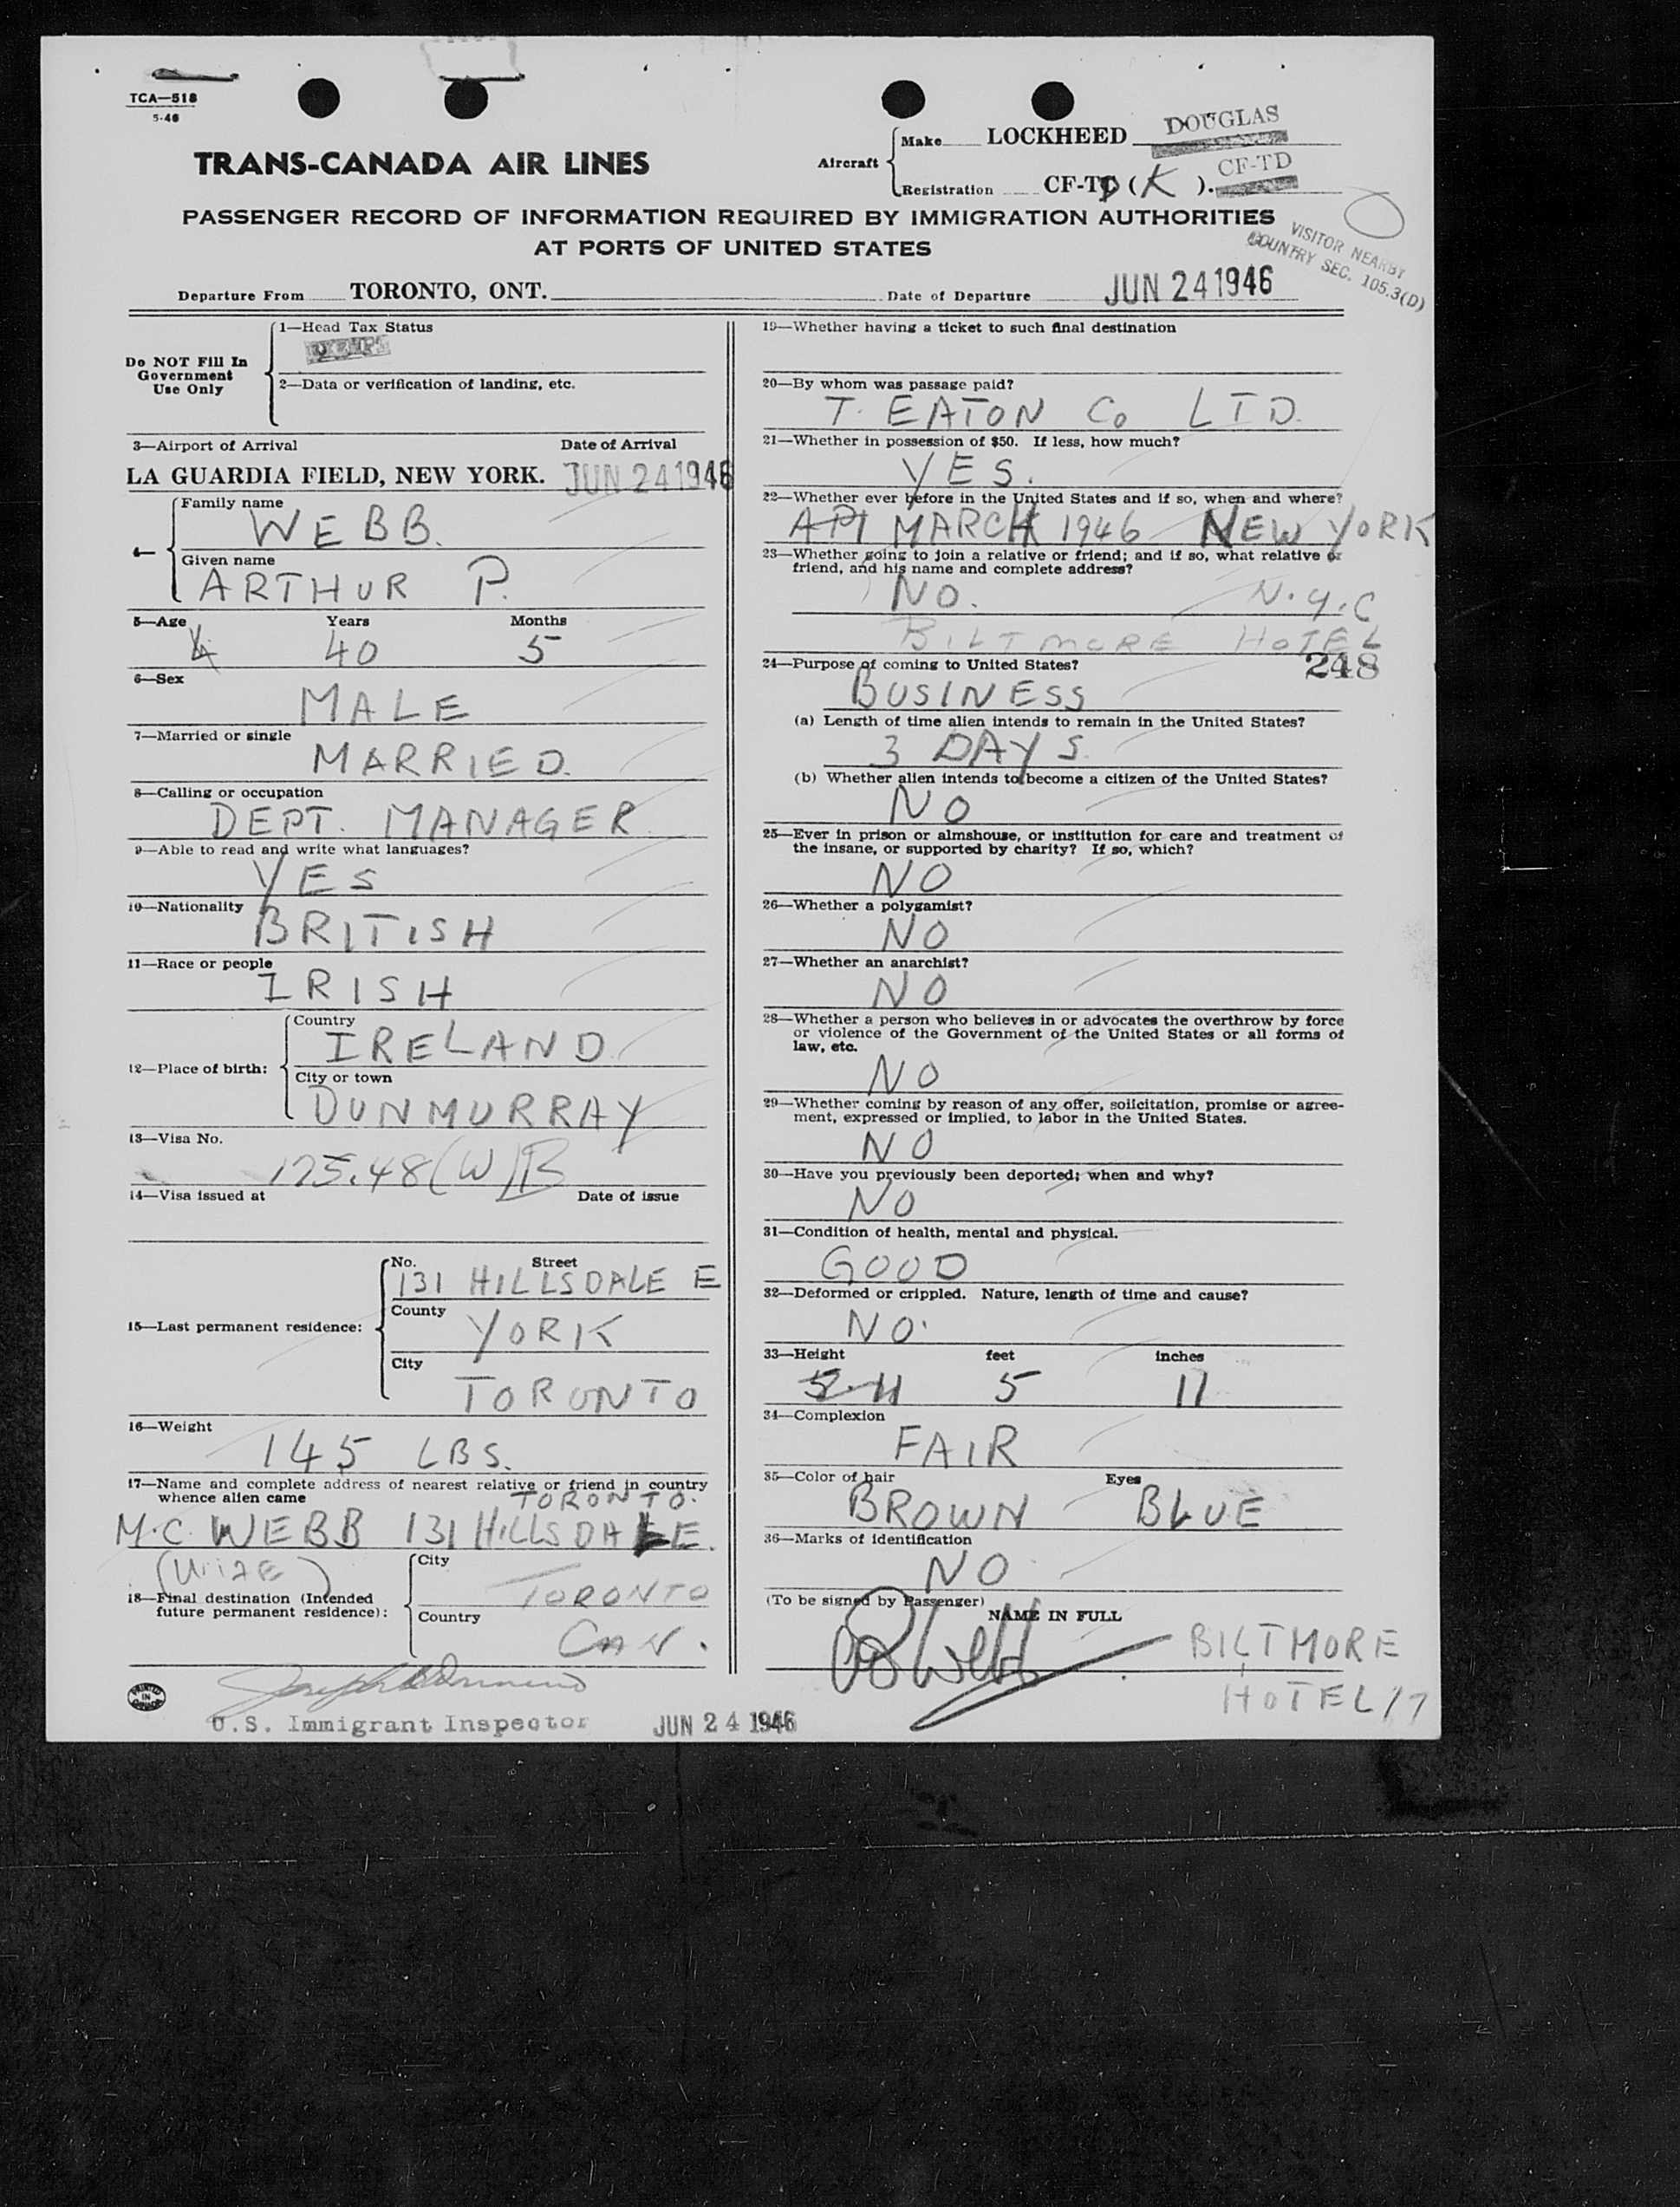 TCA—518
5-46
TRANS-CANADA AIR LINES
Aircraft
Make LOCKHEED DOUGLAS
Registration CF-TD (K). CF-TD
PASSENGER RECORD OF INFORMATION REQUIRED BY IMMIGRATION AUTHORITIES
AT PORTS OF UNITED STATES
VISITOR NEARBY
COUNTRY SEC. 105.3(D)
Departure From TORONTO, ONT. Date of Departure JUN 24 1946
Do NOT Fill In
Government
Use Only
1—Head Tax Status
EXEMPT
2—Data or verification of landing, etc.
3—Airport of Arrival Date of Arrival
LA GUARDIA FIELD, NEW YORK. JUN 24 1946
4—
Family name
WEBB.
Given name
ARTHUR P.
5—Age Years Months
40 5
6—Sex
MALE
7—Married or single
MARRIED.
8—Calling or occupation
DEPT. MANAGER
9—Able to read and write what languages?
YES
10—Nationality
BRITISH
11—Race or people
IRISH
12—Place of birth:
Country
IRELAND
City or town
DUNMURRAY
13—Visa No.
175.48(W)B
14—Visa issued at Date of issue
15—Last permanent residence:
No. Street
131 HILLSDALE E
County
YORK
City
TORONTO
16—Weight
145 LBS.
17—Name and complete address of nearest relative or friend in country
whence alien came
TORONTO.
M.C. WEBB 131 HILLSDALE E.
18—Final destination (Intended
future permanent residence):
City
TORONTO
Country
CAN.
PRINTED
IN
CANADA
U.S. Immigrant Inspector JUN 24 1946
19—Whether having a ticket to such final destination
20—By whom was passage paid?
T. EATON Co LTD.
21—Whether in possession of $50. If less, how much?
YES.
22—Whether ever before in the United States and if so, when and where?
API MARCH 1946 NEW YORK
23—Whether going to join a relative or friend; and if so, what relative or
friend, and his name and complete address?
NO. N.Y.C
BILTMORE HOTEL
248
24—Purpose of coming to United States?
BUSINESS
(a) Length of time alien intends to remain in the United States?
3 DAYS.
(b) Whether alien intends to become a citizen of the United States?
NO
25—Ever in prison or almshouse, or institution for care and treatment of
the insane, or supported by charity? If so, which?
NO
26—Whether a polygamist?
NO
27—Whether an anarchist?
NO
28—Whether a person who believes in or advocates the overthrow by force
or violence of the Government of the United States or all forms of
law, etc.
NO
29—Whether coming by reason of any offer, solicitation, promise or agree-
ment, expressed or implied, to labor in the United States.
NO
30—Have you previously been deported; when and why?
NO
31—Condition of health, mental and physical.
GOOD
32—Deformed or crippled. Nature, length of time and cause?
NO.
33—Height feet inches
5-11 5 11
34—Complexion
FAIR
35—Color of hair Eyes
BROWN BLUE
36—Marks of identification
NO
(To be signed by Passenger)
NAME IN FULL
BILTMORE
HOTEL